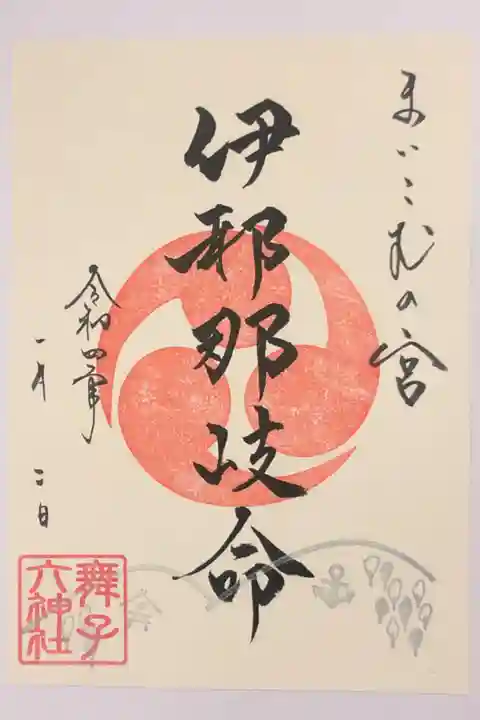 まいこむの宮
伊邪那岐命
令和四年
一月
二日
舞子
六神社